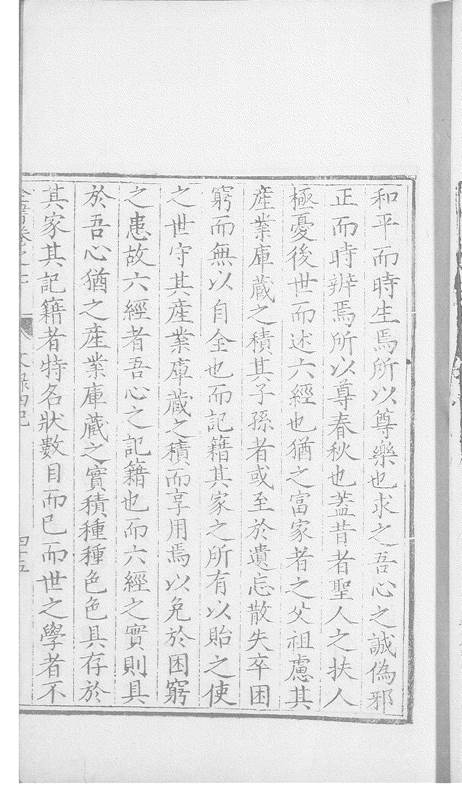 和平而時生焉所以尊樂也求之吾心之誠偽邪
正而時辨焉所以尊春秋也葢昔者聖人之扶人
極憂後世而述六經也猶之富家者之父祖慮其
產業庫藏之積其子孫者或至於遺忘散失卒困
窮而無以自全也而記籍其家之所有以貽之使
之世守其產業庫藏之積而享用焉以免於困窮
之患故六經者吾心之記籍也而六經之實則具
於吾心猶之產業庫藏之實積種種色色具存於
其家其記籍者特名狀數目而已而世之學者不